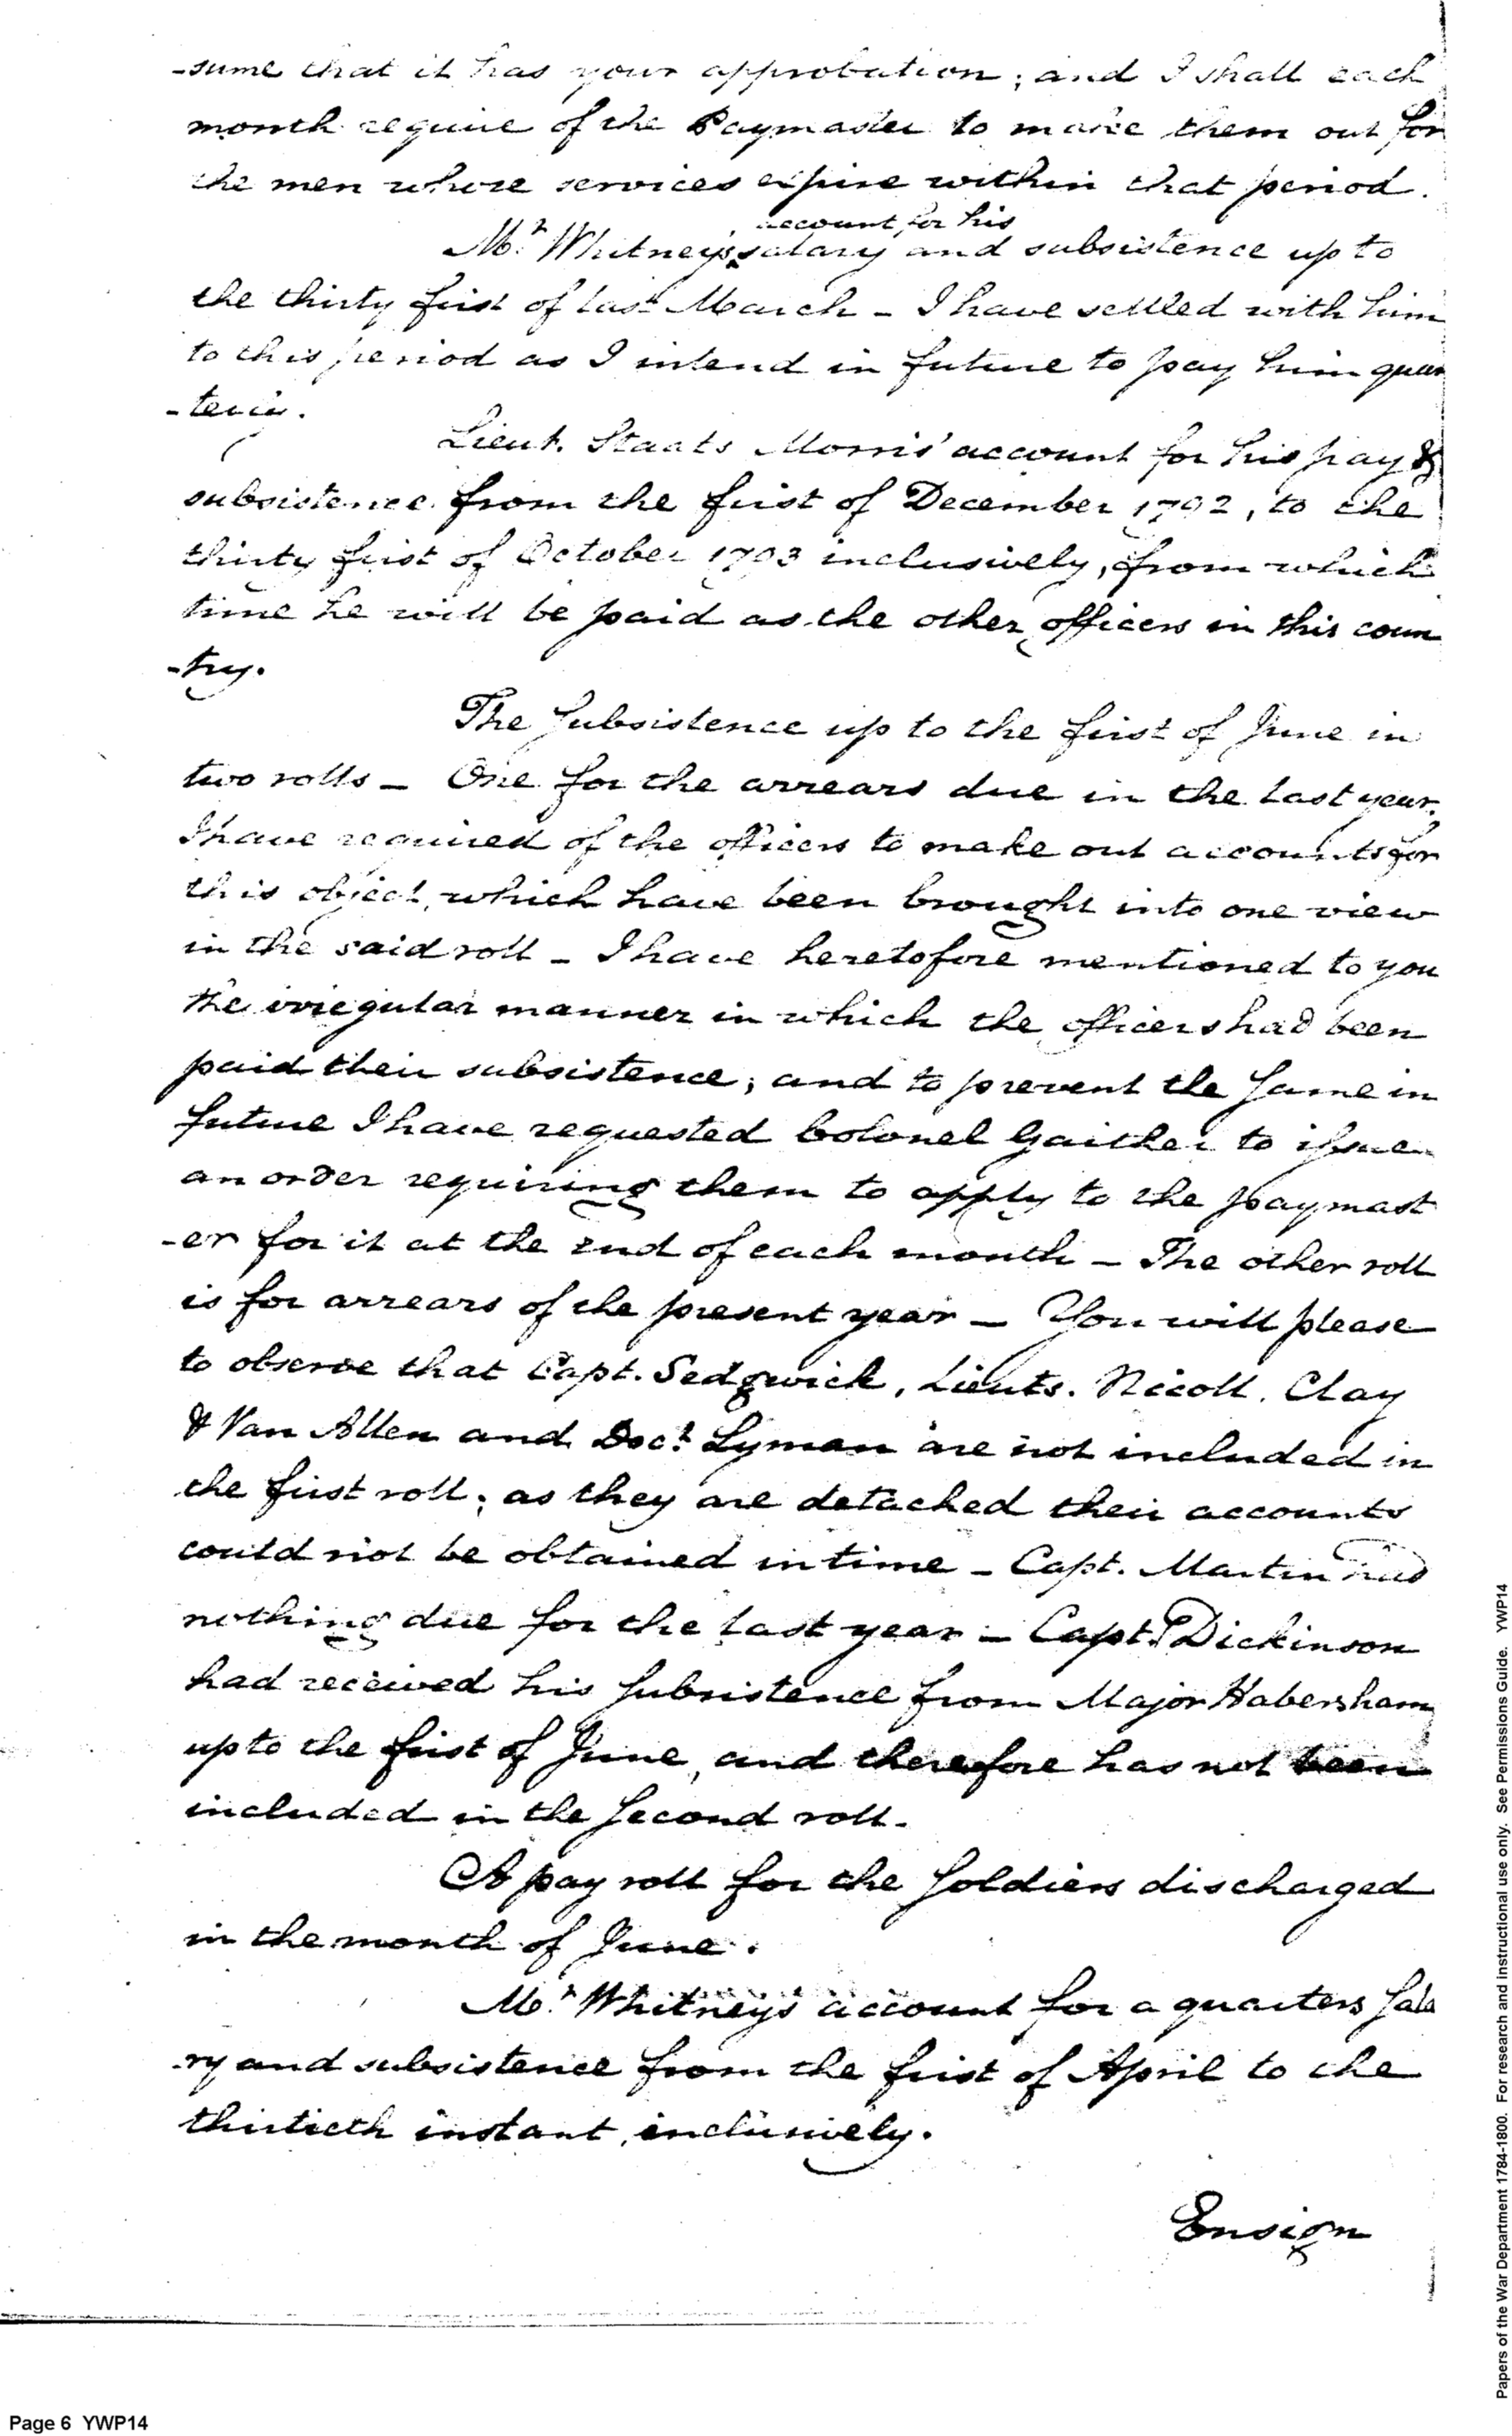 -sume that it has your approbation; and I shall each
month require of the Paymaster to make them out for
the men whose services expire within that period.
account for his
Mr. Whitney's salary and subsistence up to
the thirty first of last March - I have settled with him
to this period as I intend in future to pay him quar
-terly.
Lieut. Staats Morris' account for his pay &
subsistence from the first of December 1792, to the
thirty first of October 1793 inclusively, from which
time he will be paid as the other officers in this coun
-try.
The Subsistence up to the first of June in
two rolls - One for the arrears due in the last year.
I have required of the officers to make out accounts for
this object, which have been brought into one view
in the said roll - I have heretofore mentioned to you
the irregular manner in which the officers had been
paid their subsistence; and to prevent the same in
future I have requested Colonel Gaither to issue
an order requiring them to apply to the paymast
-er for it at the end of each month - The other roll
is for arrears of the present year - You will please
to observe that Capt. Sedgwick, Lieuts. Nicoll, Clay
& Van Allen and Doct. Lyman are not included in
the first roll; as they are detached their accounts
could not be obtained in time - Capt. Martin had
nothing due for the last year - Capt. Dickinson
had received his Subsistence from Major Habersham
up to the first of June, and therefore has not been
included in the second roll.
A pay roll for the Soldiers discharged
in the month of June.
Mr. Whitneys account for a quarters Sala
-ry and subsistence from the first of April to the
thirtieth instant, inclusively.
Ensign
Page 6 YWP14
Papers of the War Department 1784-1800. For research and instructional use only. See Permissions Guide. YWP14